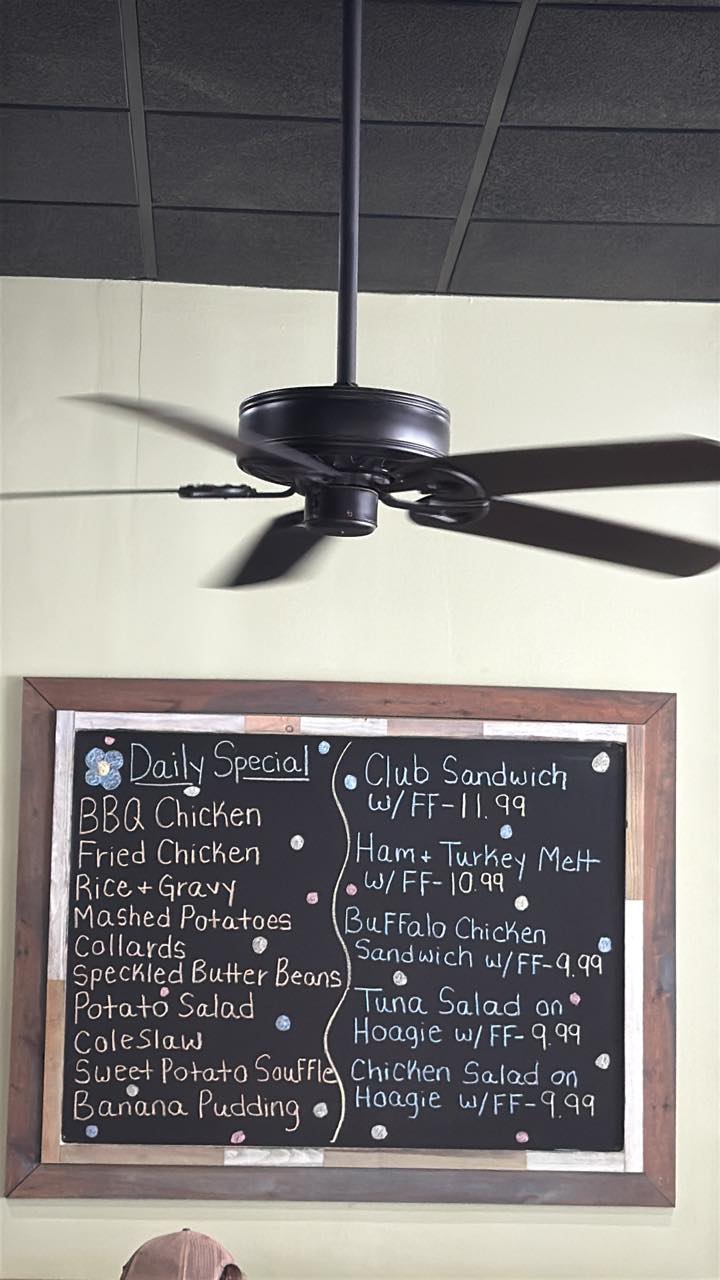 Daily Special
BBQ Chicken
Fried Chicken
Rice + Gravy
Mashed Potatoes
Collards
Speckled Butter Beans
Potato Salad
Coleslaw
Sweet Potato Souffle
Banana Pudding
Club Sandwich
w/FF-11.99
Ham + Turkey Melt
w/FF-10.99
Buffalo Chicken
Sandwich w/FF-9.99
Tuna Salad on
Hoagie w/FF-9.99
Chicken Salad on
Hoagie w/FF-9.99